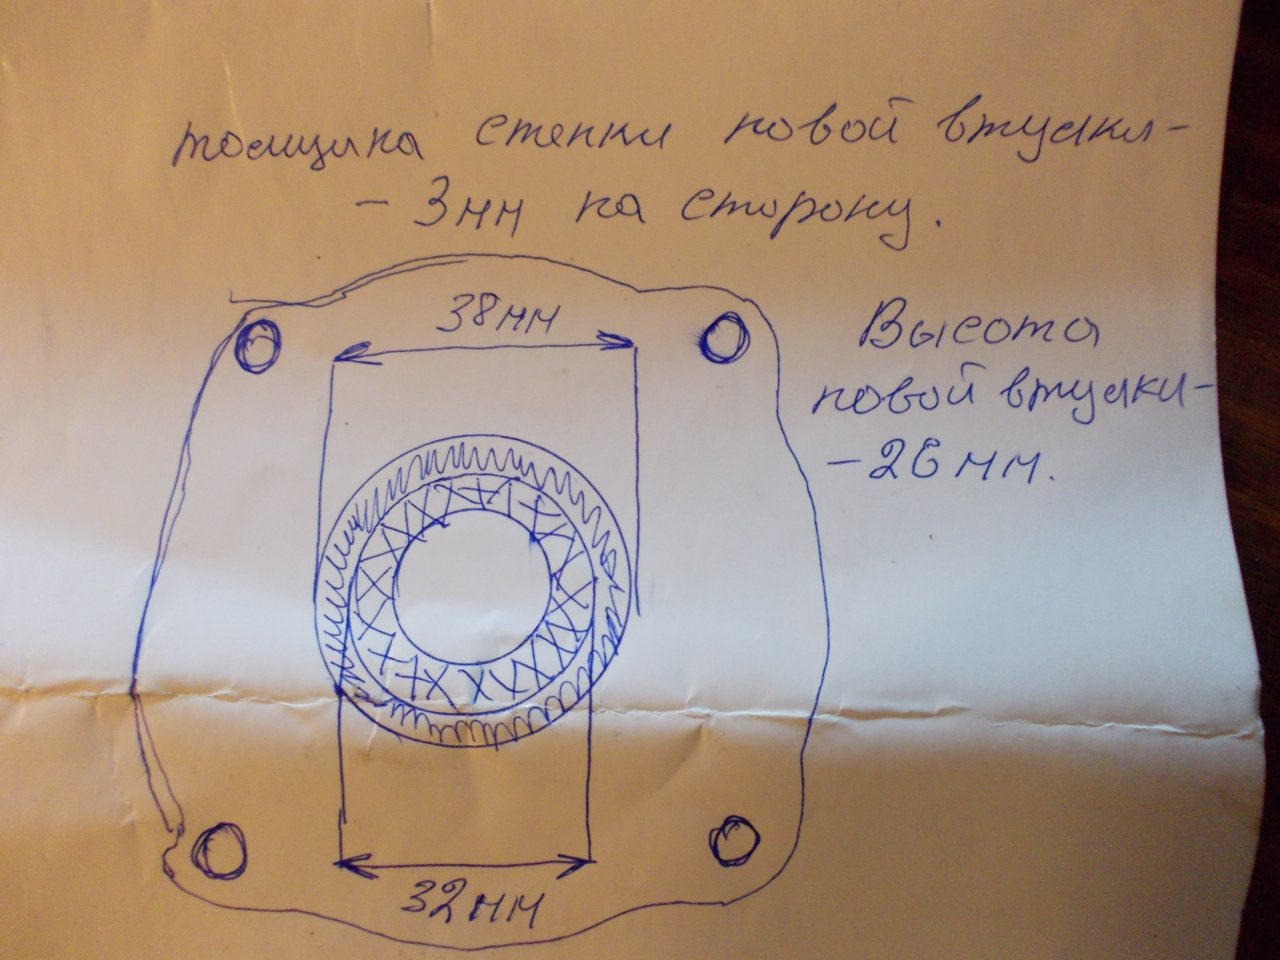 толщина стенки новой втулки-
- 3мм на сторону.
38мм
Высота
новой втулки-
- 26мм.
32мм